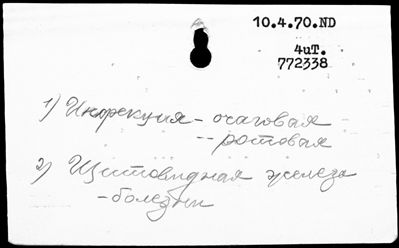 10.4.70.ND
4uT.
772338
1) Инфекция - очаговая
-- ротовая
2) Щитовидная железа
- болезни